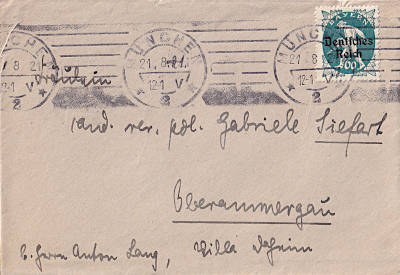 MÜNCHEN
21. 8. 21
12-1 V
2
MÜNCHEN
21. 8. 21
12-1 V
2
MÜNCHEN
21. 8
12-1 V
2
BAYERN
Deutsches
Reich
Fräulein
cand. rer. pol. Gabriele Siefart
Oberammergau
b. Herrn Anton Lang, Villa Daheim